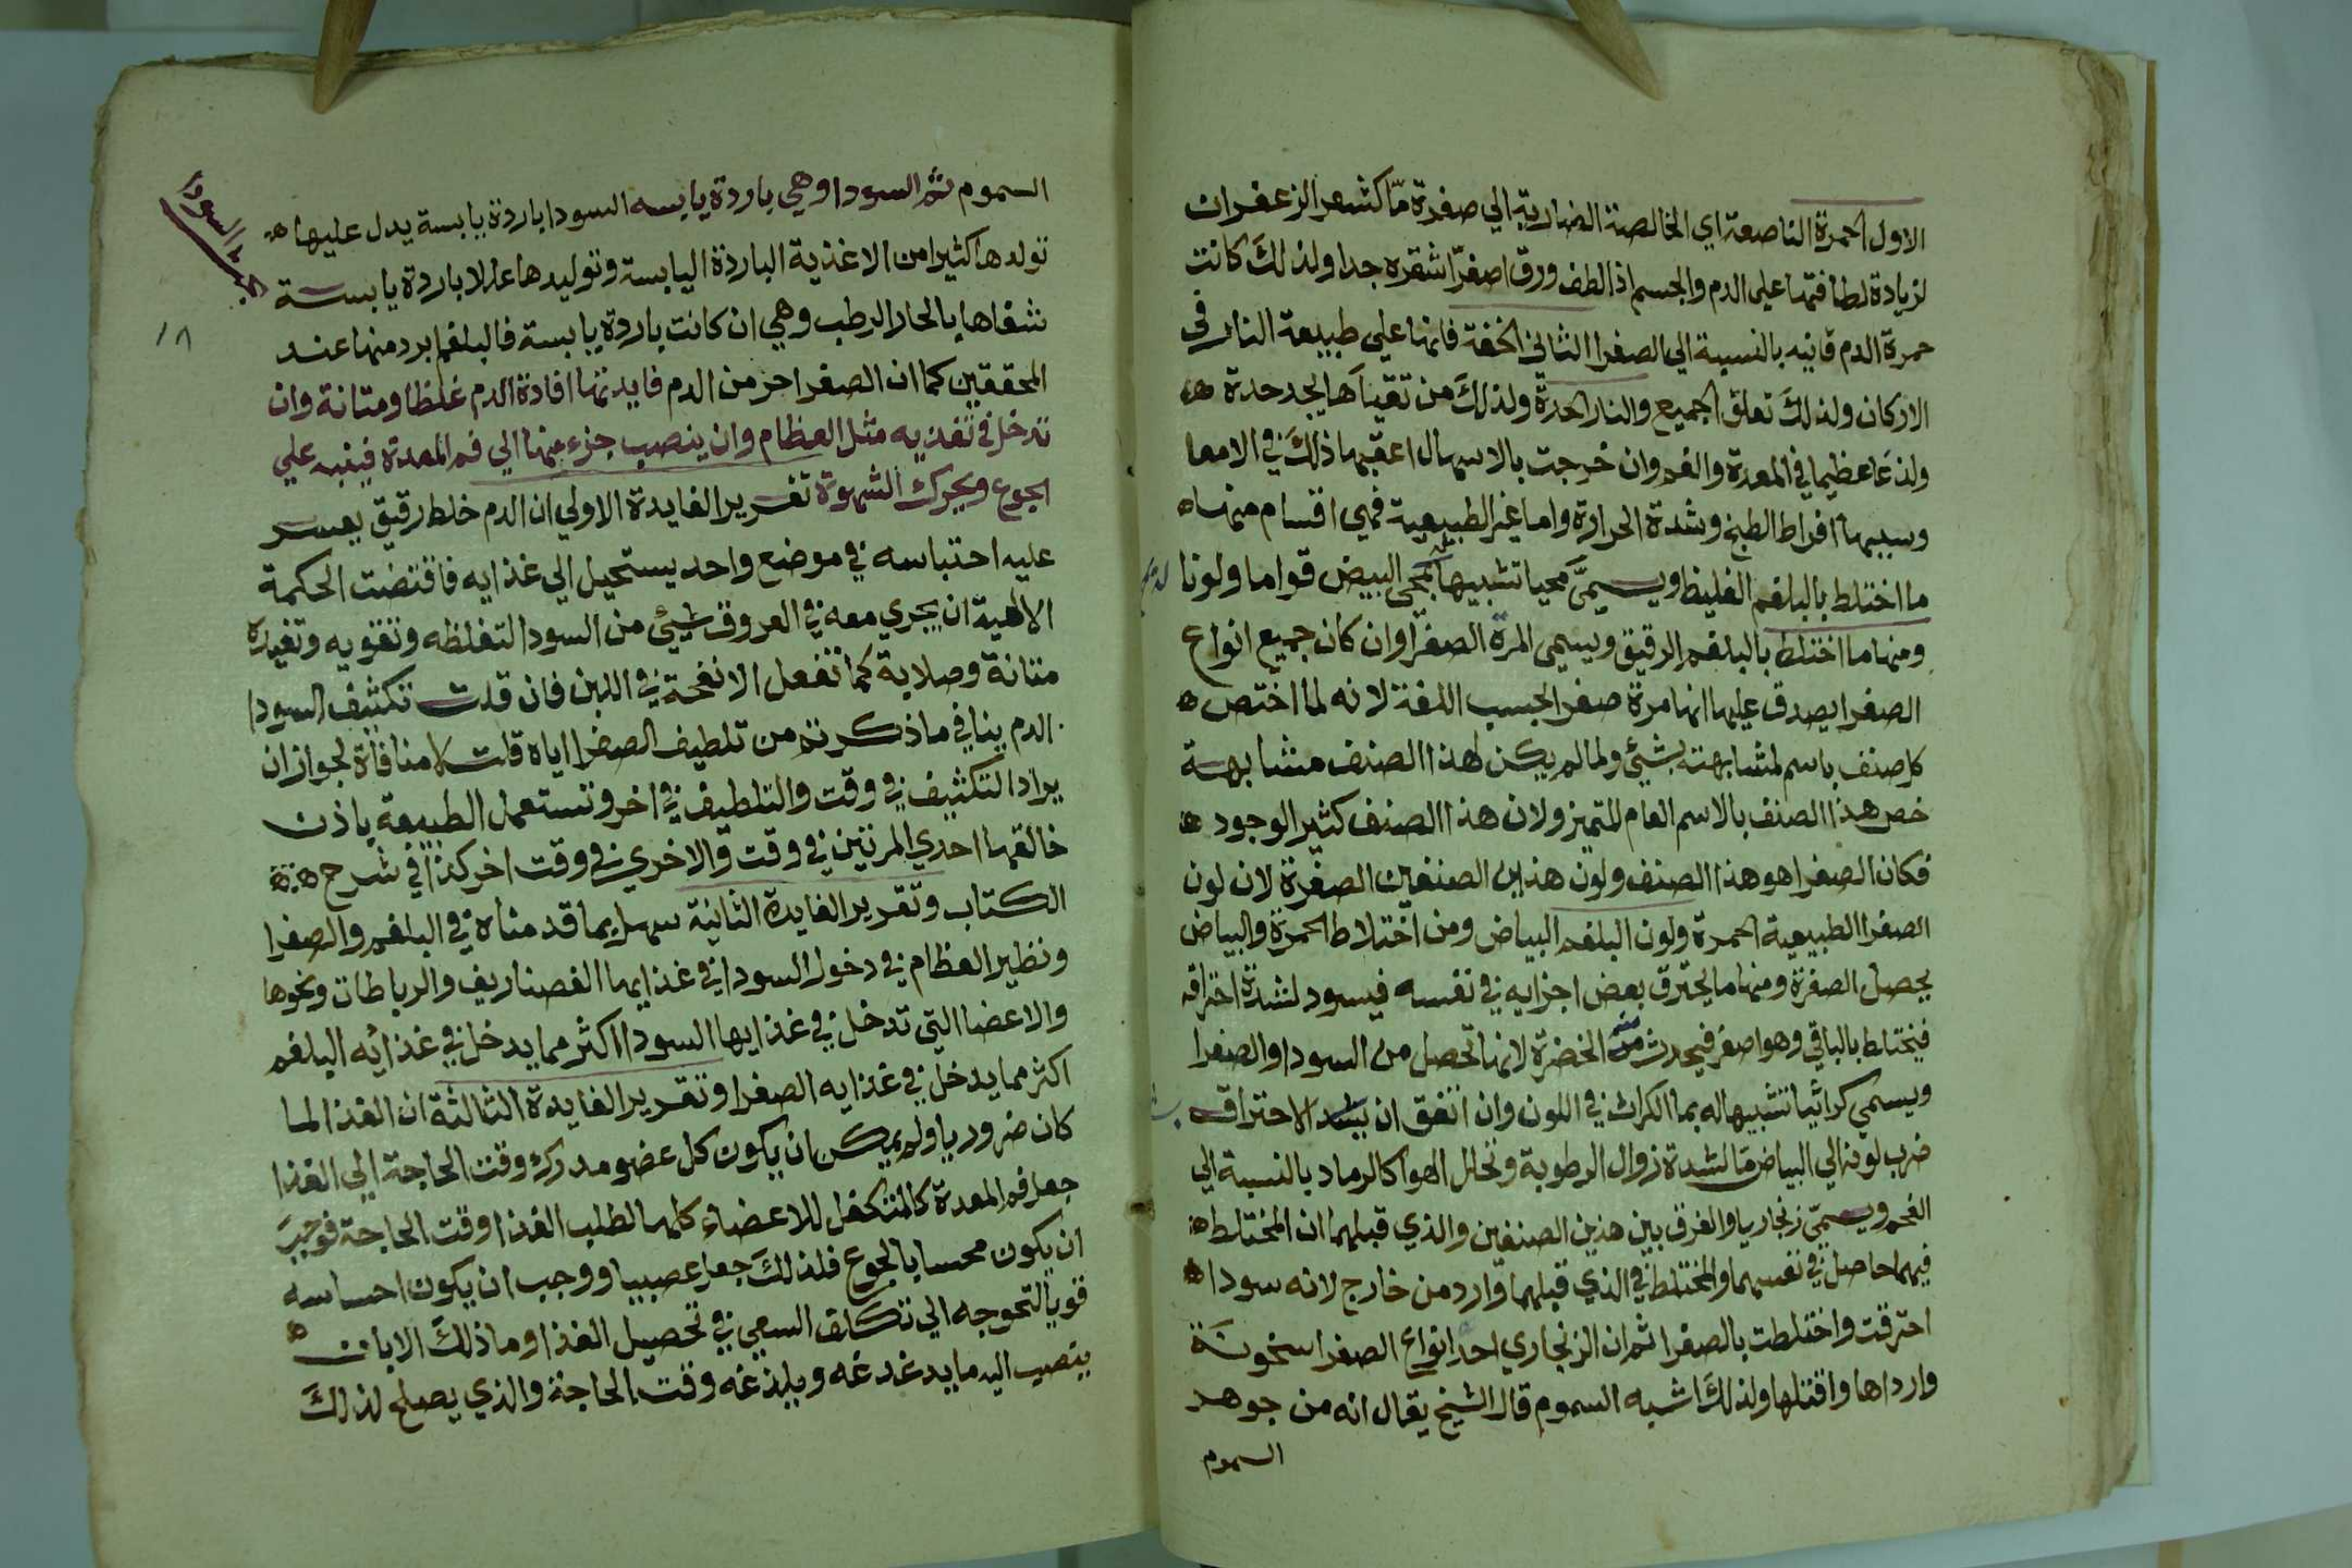 الاول الحمرة الناصعة اي الخالصة الضاربة الي صفرة ما كشعر الزعفران
لزيادة لطافتها علي الدم والجسم اذا لطف ورق اصفر اشقره جدا ولذلك كانت
حمرة الدم قانيه بالنسبة الي الصفرا الثاني الخفة فانها علي طبيعة النار في
الاركان ولذلك تعلق الجميع والنار الحدة ولذلك من تقياها يجد حدة
ولذعا عظيما في المعدة والفم وان خرجت بالاسهال اعقبها ذلك في الامعا
وسببها افراط الطبخ وشدة الحرارة واما غير الطبيعية فهي اقسام منها
ما اختلط بالبلغم الغليظ ويسمي محيا تشبيها له بمحي البيض قواما ولونا
ومنها ما اختلط بالبلغم الرقيق ويسمي المرة الصفرا وان كان جميع انواع
الصفرا يصدق عليها انها مرة صفرا بحسب اللغة لانه لما اختص
كل صنف باسم لمشابهته بشئي ولما لم يكن لهذا الصنف مشابهة
خص هذا الصنف بالاسم العام لتميز ولان هذا الصنف كثير الوجود
فكان الصفرا هو هذا الصنف ولون هذاين الصنفين الصفرة لان لون
الصفرا الطبيعية الحمرة ولون البلغم البياض ومن اختلاط الحمرة والبياض
يحصل الصفرة ومنها ما يحترق بعض اجزايه في نفسه فيسود لشدة احتراقه
فيختلط بالباقي وهو اصفر فيحدث منه الخضرة لانها تحصل من السودا والصفرا
ويسمي كراثيا تشبيها له بما الكراث في اللون وان اتفق ان يشد الاحتراق
ضرب لونه الي البياض ما لشدة زوال الرطوبة وتخلل الهوا كالرماد بالنسبة الي
الفحم ويسمي زنجاريا والفرق بين هذين الصنفين والذي قبلهما ان المختلط
فيهما حاصل في نفسهما والمختلط في الذي قبلهما وارد من خارج لانه سودا
احترقت واختلطت بالصفرا ثم ان الزنجاري احد انواع الصفرا سخونة
وارداها واقتلها ولذلك اشبه السموم قال الشيخ يقال انه من جوهر
السموم
السموم ثم السودا وهي باردة يابسه السودا باردة يابسة يدل عليها
تولدها كثيرا من الاغذية الباردة اليابسة وتوليدها عللا باردة يابسة
شفاها بالحار الرطب وهي ان كانت باردة يابسة فالبلغم ابرد منها عند
المحققين كما ان الصفرا احر من الدم فايدتها افادة الدم غلظا ومتانة وان
تدخل في تغذيه مثل العظام وان ينصب جزء منها الي فم المعدة فينبه علي
الجوع ويحرك الشهوة تقرير الفايدة الاولي ان الدم خلط رقيق يعسر
عليه احتباسه في موضع واحد يستحيل الي غذايه فاقتضت الحكمة
الالهية ان يجري معه في العروق شيئ من السودا لتغلظه وتقويه وتفيده
متانة وصلابة كما تفعل الانفحة في اللبن فان قلت تكثيف السودا
الدم ينافي ما ذكرتم من تلطيف الصفرا اياه قلت لا منافاة لجواز ان
يراد التكثيف في وقت والتلطيف في اخر وتستعمل الطبيعة باذن
خالقها احدي المرتين في وقت والاخري في وقت اخر كذا في شرح
الكتاب وتقرير الفايدة الثانية سهل بما قدمناه في البلغم والصفرا
ونظير العظام في دخول السودا في غذايها الغضاريف والرباطات ونحوها
والاعضا التي تدخل في غذايها السودا اكثر مما يدخل في غذائه البلغم
اكثر مما يدخل في غذايه الصفرا وتقرير الفايدة الثالثة ان الغذا لما
كان ضروريا ولم يمكن ان يكون كل عضو مدرك وقت الحاجة الي الغذا
جعل فم المعدة كالمتكفل للاعضاء كلها لطلب الغذا وقت الحاجة فوجب
ان يكون محسا بالجوع فلذلك جعل عصبيا ووجب ان يكون احساسه
قويا لتحوجه الي تكلف السعي في تحصيل الغذا وما ذلك الا بان
ينصب اليه ما يدغدغه ويلذغه وقت الحاجة والذي يصلح لذلك
١٨